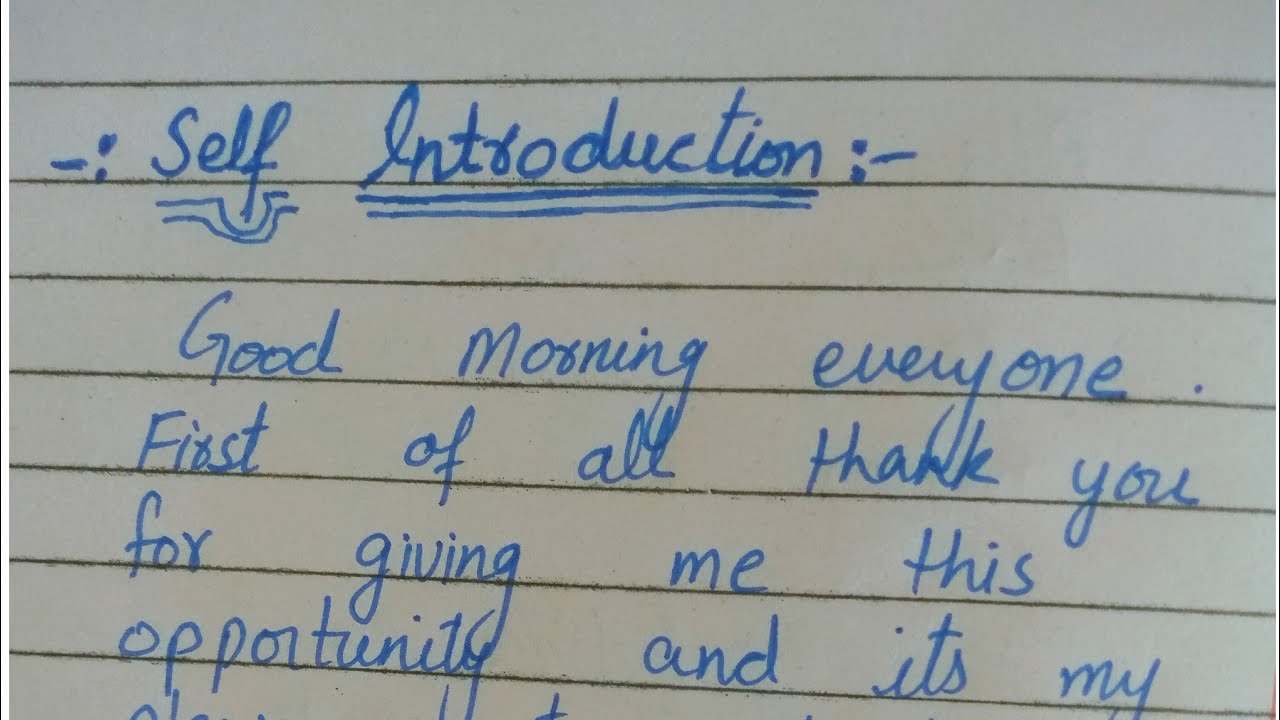 -: Self Introduction :-
Good Morning everyone.
First of all thank you
for giving me this
opportunity and its my